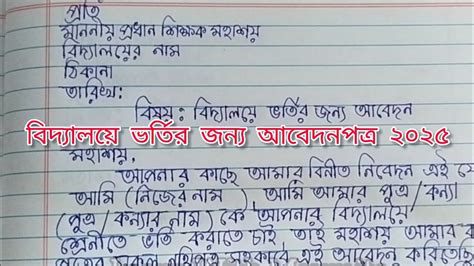 প্রতি
মাননীয় প্রধান শিক্ষক মহাশয়
বিদ্যালয়ের নাম
ঠিকানা
তারিখ:
বিষয়: বিদ্যালয়ে ভর্তির জন্য আবেদন
বিদ্যালয়ে ভর্তির জন্য আবেদনপত্র ২০২৫
মহাশয়,
আপনার কাছে আমার বিনীত নিবেদন এই যে
আমি (নিজের নাম) আমি আমার পুত্র/কন্যা
(পুত্র/কন্যার নাম) কে আপনার বিদ্যালয়ে
শ্রেনীতে ভর্তি করাতে চাই তাই মহাশয় আমার
সকল নথিপত্র সহকারে এই আবেদন করিতেছি